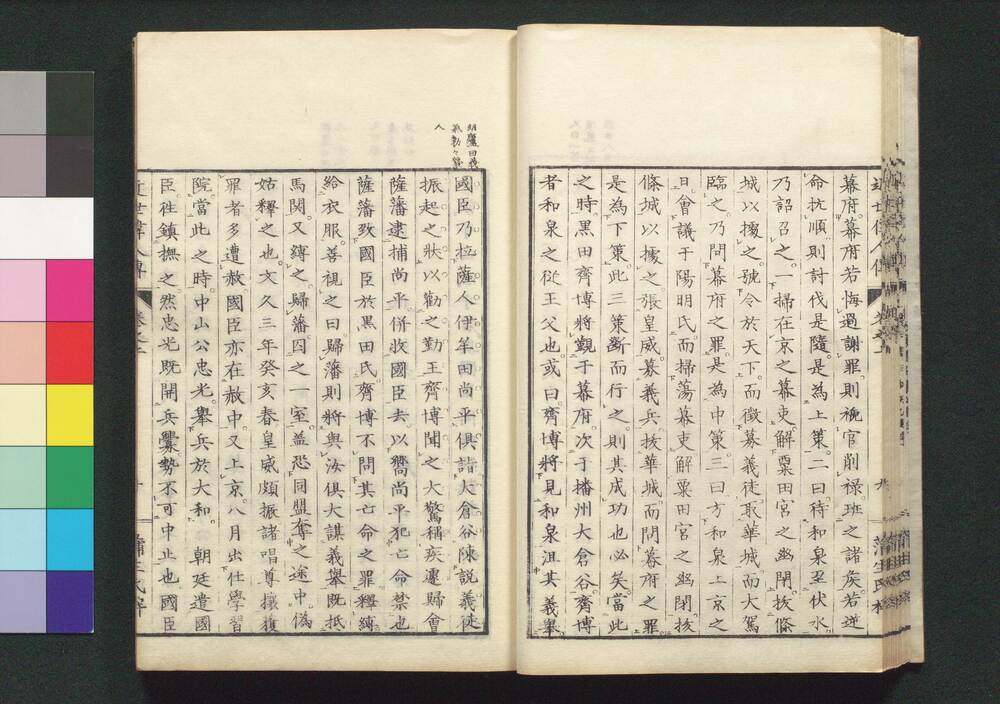 幕府。幕府若悔過謝罪。則視官削祿。班之諸矦。若逆
命抗順。則討伐是隨。是為上策。二曰。待和泉至伏水。
乃詔召之。一掃在京之幕吏。解粟田宮之幽閉。拔條
城以據之。號令於天下。而徵募義徒。取華城。而大駕
臨之。乃問幕府之罪。是為中策。三曰。方和泉上京之
日。會議于陽明氏。而掃蕩幕吏。解粟田宮之幽閉。拔
條城以據之。張皇威。募義兵。拔華城。而問幕府之罪。
是為下策。此三策。斷而行之。則其成功也必矣。當此
之時。黒田齊博將覲于幕府。次于播州大倉谷。齊博
者和泉之從王父也。或曰。齊博將見和泉沮其義舉。
國臣乃拉薩人伊牟田尚平。俱詣大倉谷。陳説義徒
振起之狀。以勸之勤王。齊博聞之大驚。稱疾遽歸。會
薩藩逮捕尚平。併收國臣去。以嚮尚平犯亡命禁也。
薩藩致國臣於黒田氏。齊博不問其亡命之罪。釋縛
給衣服。善視之曰。歸藩則將與汝俱大謀義舉。既抵
馬関。又縛之。歸藩。囚之一室。蓋恐同盟奪之途中。偽
姑釋之也。文久三年癸亥春。皇威頗振。諸唱尊攘獲
罪者多遭赦。國臣亦在赦中。又上京。八月出仕學習
院。當此之時。中山公忠光。舉兵於大和。朝廷遣國
臣往鎮撫之。然忠光既開兵釁。勢不可中止也。國臣
近世偉人傳